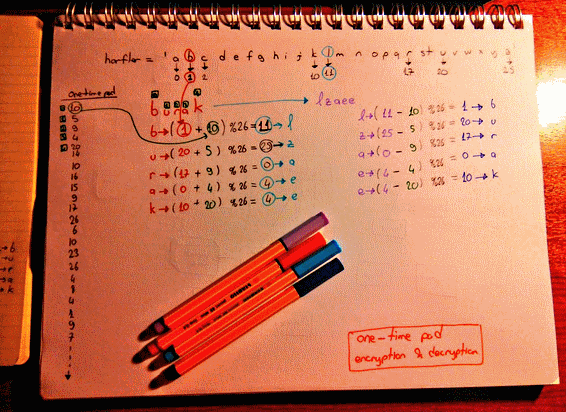 harfler = 'a b c d e f g h i j k l m n o p q r s t u v w x y z'
0 1 2 10 11 17 20 25
one time pad
10
5
9
4
20
14
10
16
15
9
17
26
6
10
23
26
4
8
4
1
9
7
burak → lzaee
b → (1 + 10) %26 = 11 → l
u → (20 + 5) %26 = 25 → z
r → (17 + 9) %26 = 0 → a
a → (0 + 4) %26 = 4 → e
k → (10 + 20) %26 = 4 → e
l → (11 - 10) %26 = 1 → b
z → (25 - 5) %26 = 20 → u
a → (0 - 9) %26 = 17 → r
e → (4 - 4) %26 = 0 → a
e → (4 - 20) %26 = 10 → k
one-time pad
encryption & decryption